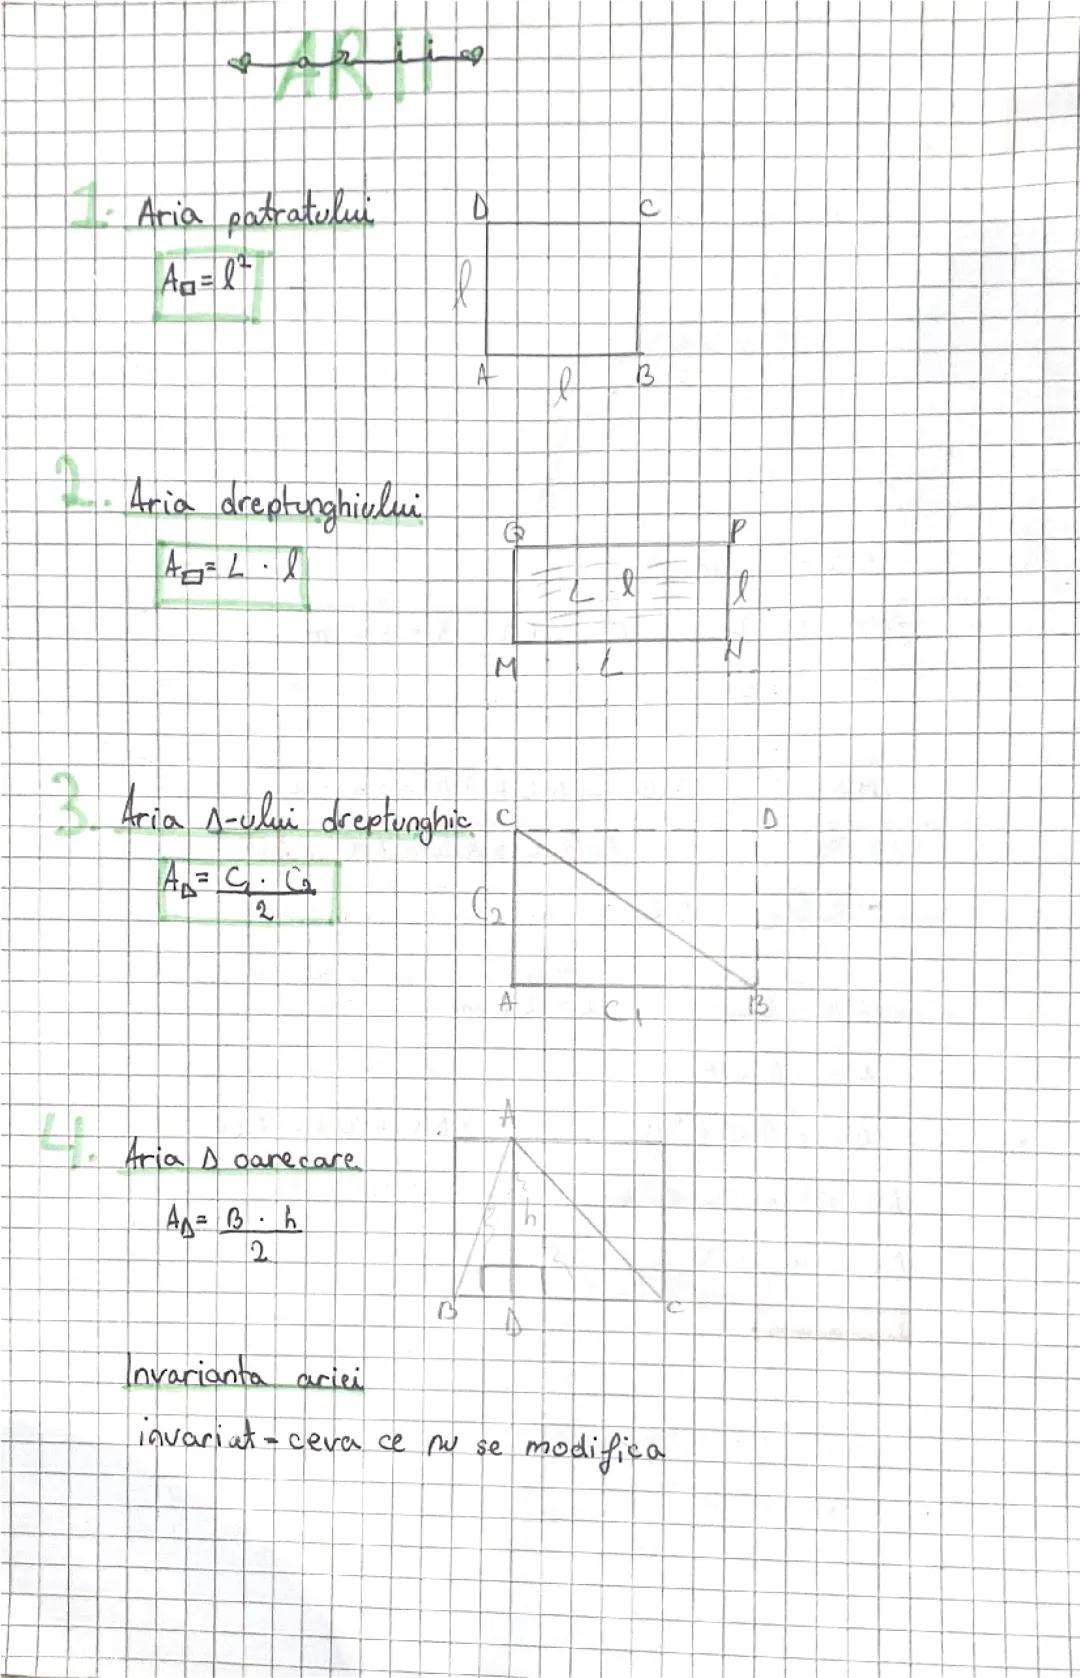 ARII
arii
1. Aria patratului
A□ = l²
D C
l
A l B
2. Aria dreptunghiului
A▭ = L · l
Q P
L l l
M L N
3. Aria Δ-ului dreptunghic
A◺ = C₁ · C₂ / 2
C D
C₂
A C₁ B
4. Aria Δ oarecare
AΔ = B · h / 2
A
h
B D C
Invarianta ariei
invariat - ceva ce nu se modifica